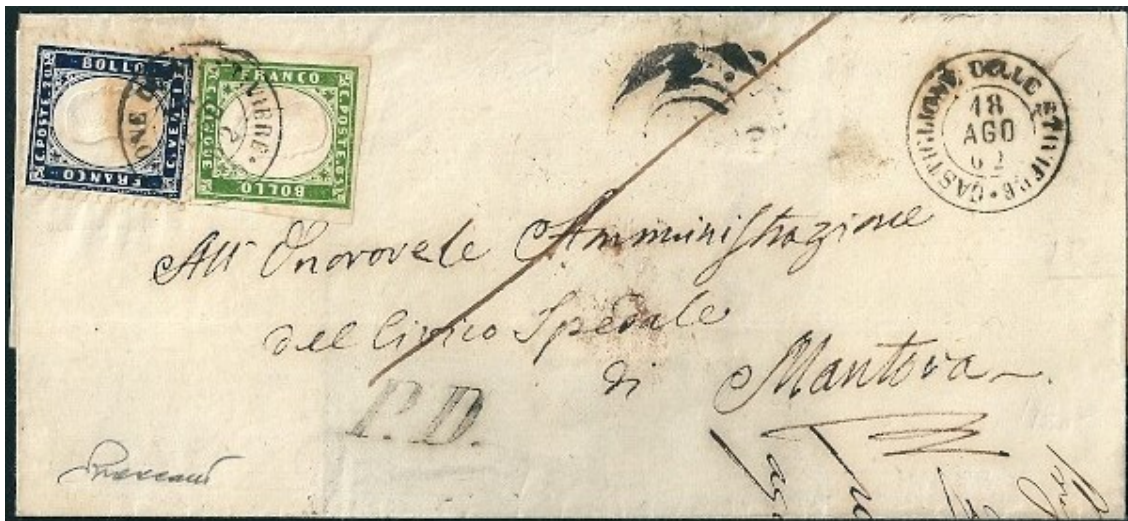 BOLLO
C. POSTE. 20
C. VENTI
FRANCO
FRANCO
C. POSTE. 5
C. CINQUE
BOLLO
CASTIGLIONE DELLE STIVIERE
18
AGO
62
All' Onorovele Amministrazione
del Civico Spedale
di Mantova
P.D.